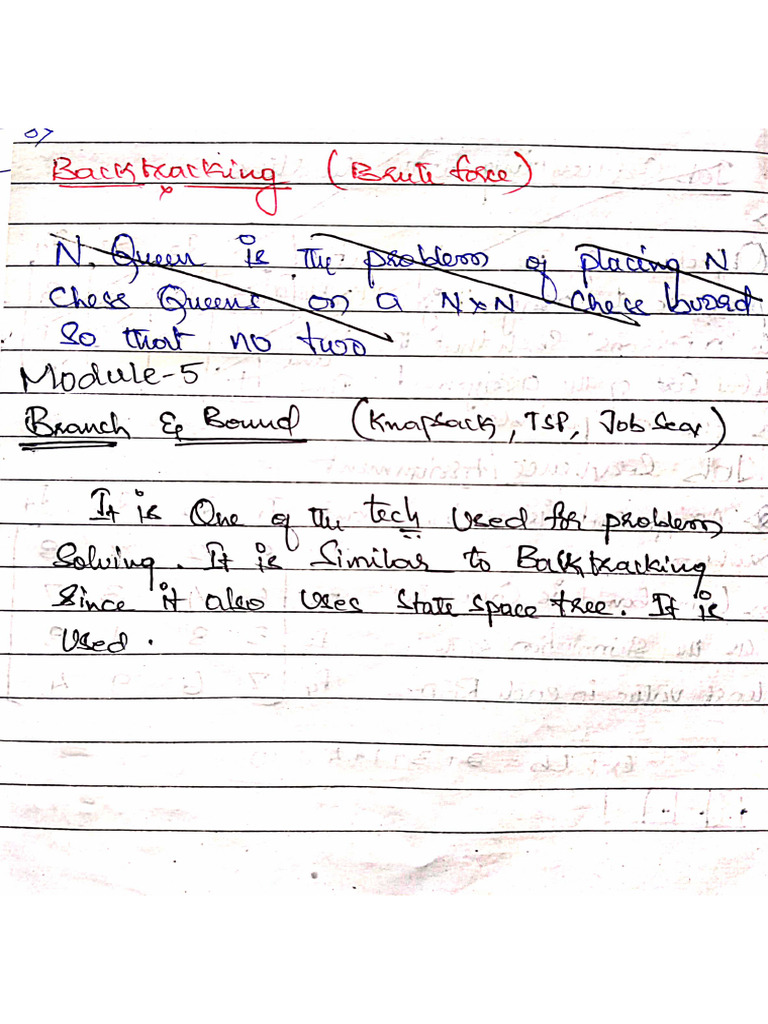 07
Backtracking (Brute force)
N. Queen is the problem of placing N
Chess Queens on a N×N chess board
So that no two
Module-5
Branch & Bound (Knapsack, TSP, Job Seq)
It is One of the tech used for problem
Solving. It is Similar to Backtracking
Since it also uses State space tree. It is
Used.